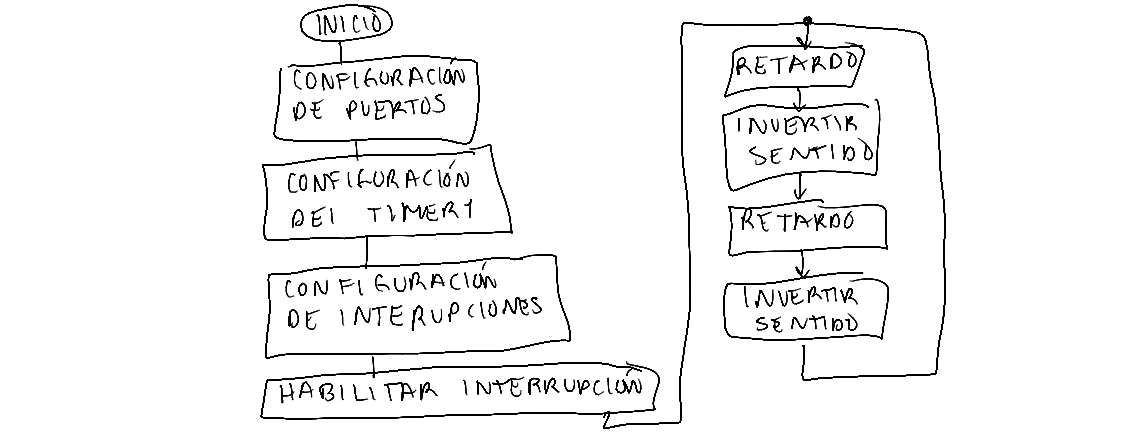 INICIO
CONFIGURACIÓN
DE PUERTOS
CONFIGURACIÓN
DEl TIMER1
CONFIGURACIÓN
DE INTERUPCIONES
HABILITAR INTERRUPCIÓN
RETARDO
INVERTIR
SENTIDO
RETARDO
INVERTIR
SENTIDO